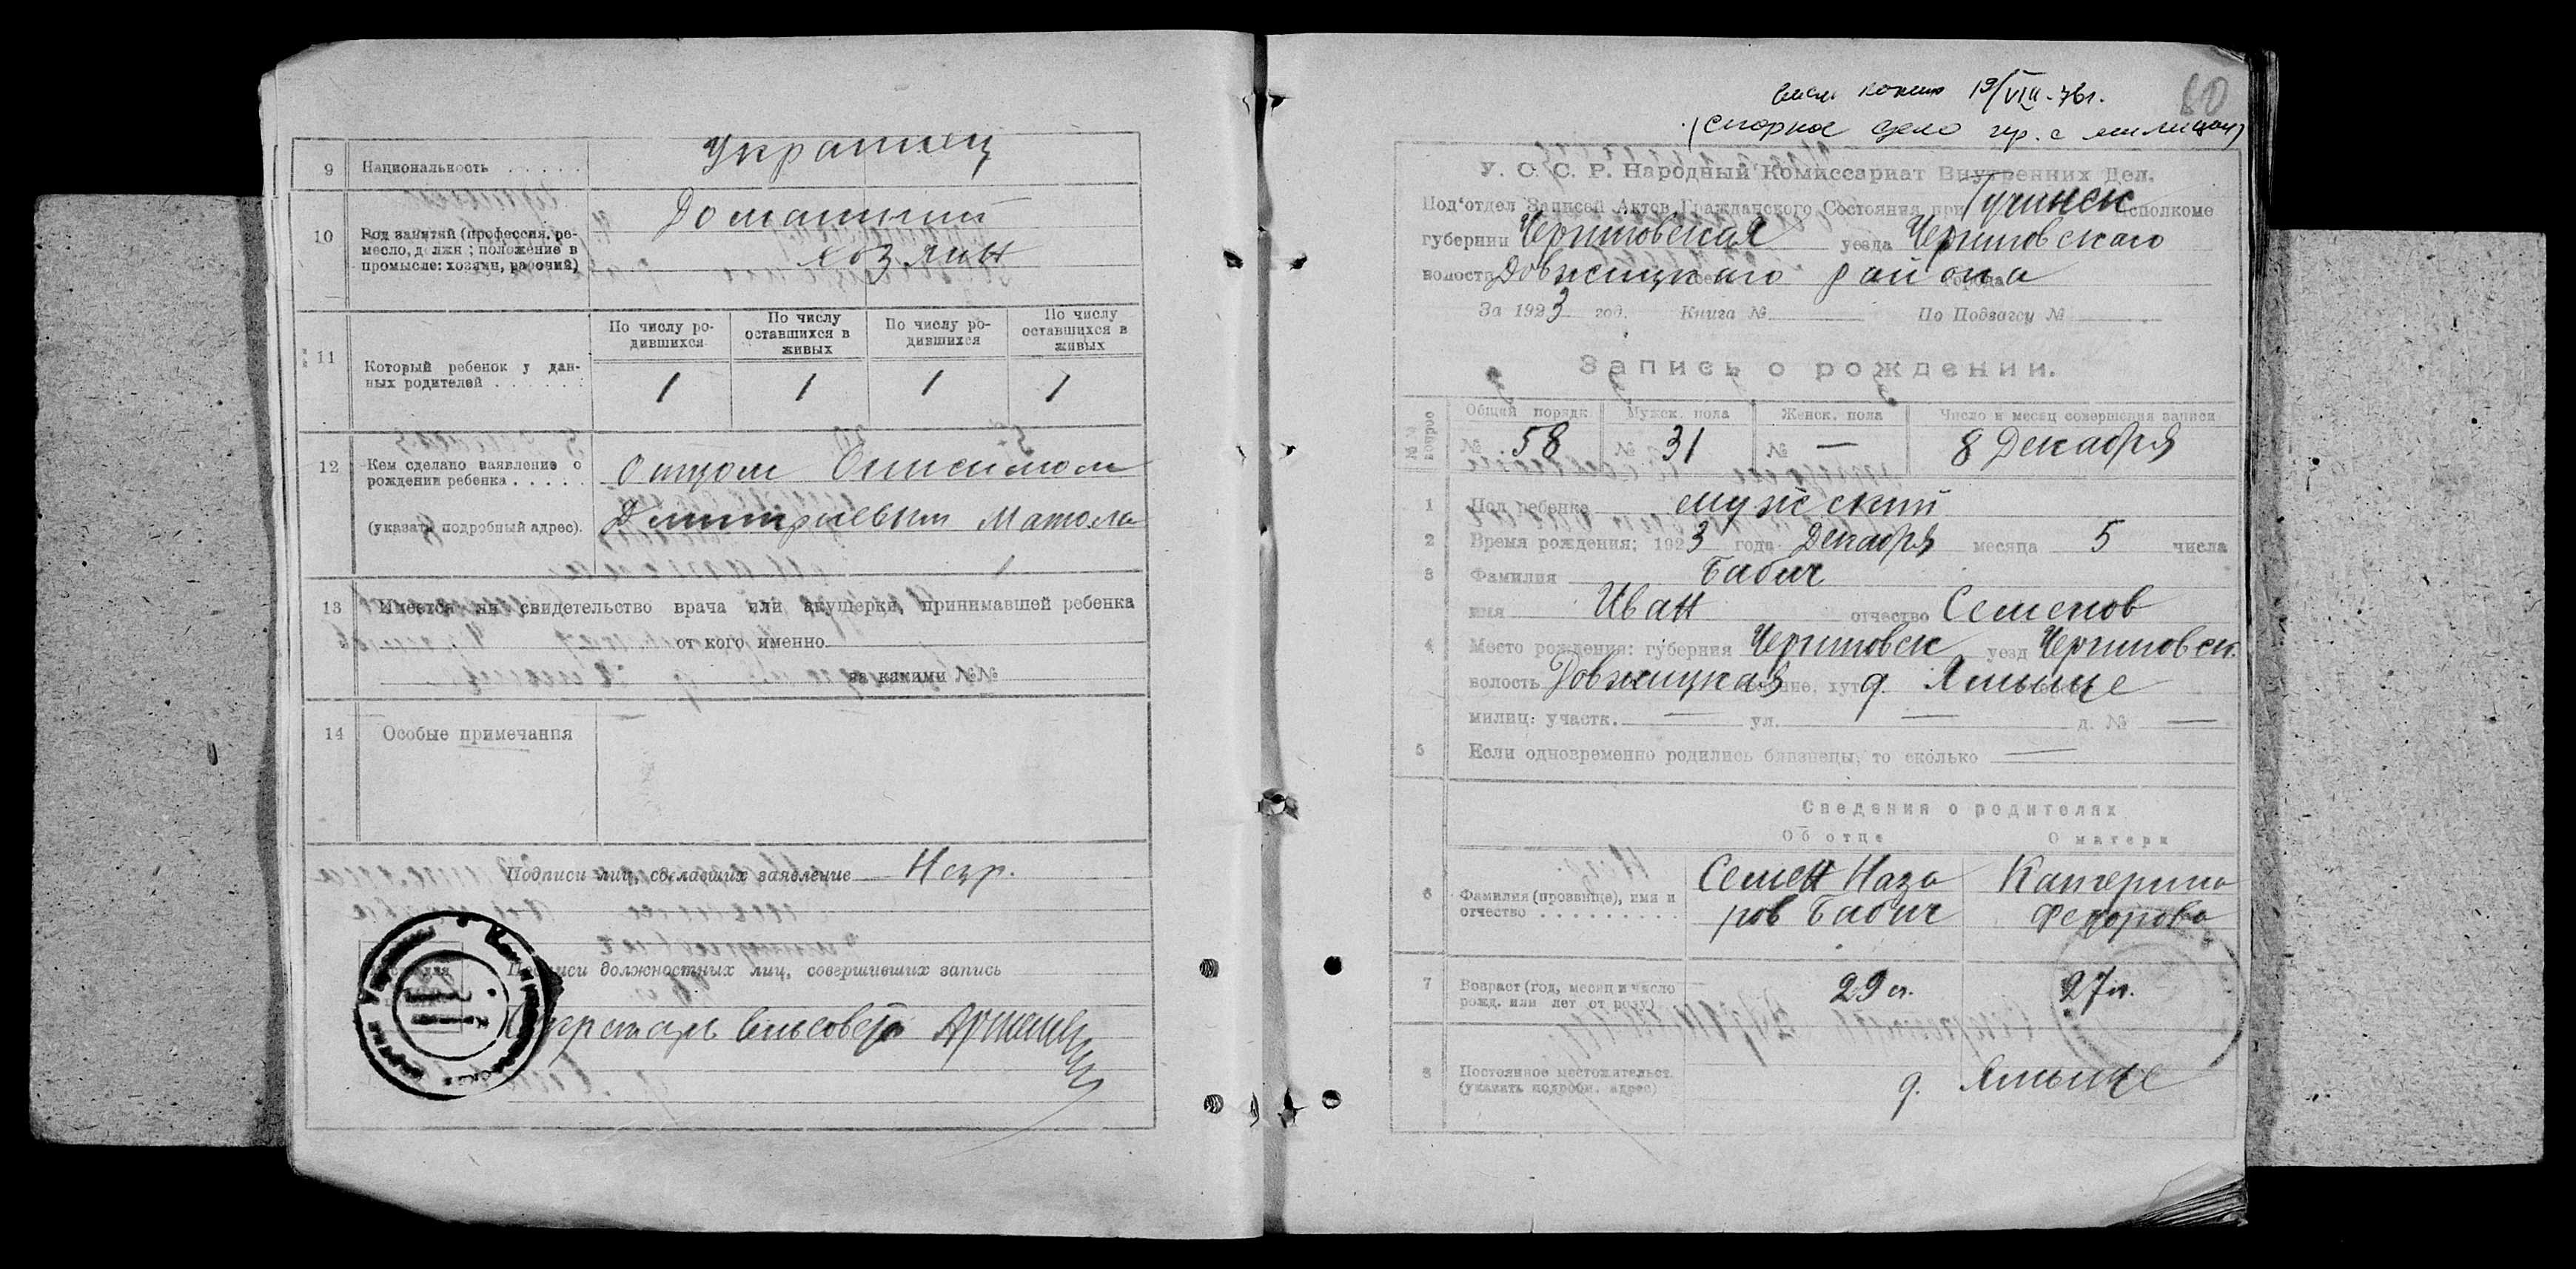 9 Национальность . . . . . Украинец
10 Род занятий (профессия, ре-
месло, должн; положение в
промысле: хозяин, рабочий)
Домашний
хозяин
11 Который ребенок у дан-
ных родителей . . . . . .
По числу ро-
дившихся
По числу
оставшихся в
живых
По числу ро-
дившихся
По числу
оставшихся в
живых
1 1 1 1
12 Кем сделано заявление о
рождении ребенка . . . . .
(указать подробный адрес).
Отцом Онисимом
Дмитриевым Матола
13 Имеется ли свидетельство врача или акушерки, принимавшей ребенка
от кого именно
за какими №№
14 Особые примечания
Подписи лиц, сделавших заявление Негр.
Подписи должностных лиц, совершивших запись
Секретарь сельсовета
вися копию 19/VIII-76г. 60
(спорное дело гр. с милицией)
У. С. С. Р. Народный Комиссариат Внутренних Дел.
Под'отдел Записей Актов Гражданского Состояния при исполкоме
губернии Черниговская уезда Черниговскаго
волости Довжицкаго района города
За 1923 год. Книга № По Подзагсу №
Запись о рождении.
№№ вопрос
Общий порядк. Мужск. пола Женск. пола Число и месяц совершения записи
№ 58 № 31 № — 8 Декабря
1 Пол ребенка мужский
2 Время рождения; 1923 года Декабря месяца 5 числа
3 Фамилия Бабич
имя Иван отчество Семенов
4 Место рождения: губерния Черниговск уезд Черниговск.
волость Довжицкая д. Ямыще
милиц: участк. — ул. — д. № —
5 Если одновременно родились близнецы, то сколько —
Сведения о родителях
Об отце О матери
6 Фамилия (прозвище), имя и
отчество . . . . . . . . . .
Семен Наза
ров Бабич
Катерина
Федорова
7 Возраст (год, месяц и число
рожд. или лет от роду)
29 л. 27 л.
8 Постоянное местожительст.
(указать подробн. адрес)
д. Ямыще